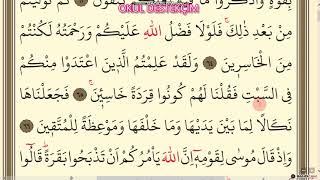 OKUL DESTEKÇİM
بِقُوَّةٍ وَاذْكُرُوا مَا
مِنْ بَعْدِ ذٰلِكَۚ فَلَوْلَا فَضْلُ اللّٰهِ عَلَيْكُمْ وَرَحْمَتُهُ لَكُنْتُمْ
مِنَ الْخَاسِرٖينَ ﴿٦٤﴾ وَلَقَدْ عَلِمْتُمُ الَّذٖينَ اعْتَدَوْا مِنْكُمْ
فِى السَّبْتِ فَقُلْنَا لَهُمْ كُونُوا قِرَدَةً خَاسِـٖٔينَۚ ﴿٦٥﴾ فَجَعَلْنَاهَا
نَكَالًا لِمَا بَيْنَ يَدَيْهَا وَمَا خَلْفَهَا وَمَوْعِظَةً لِلْمُتَّقٖينَ
﴿٦٦﴾ وَاِذْ قَالَ مُوسٰى لِقَوْمِهٖٓ اِنَّ اللّٰهَ يَأْمُرُكُمْ اَنْ تَذْبَحُوا بَقَرَةًۜ قَالُٓوا